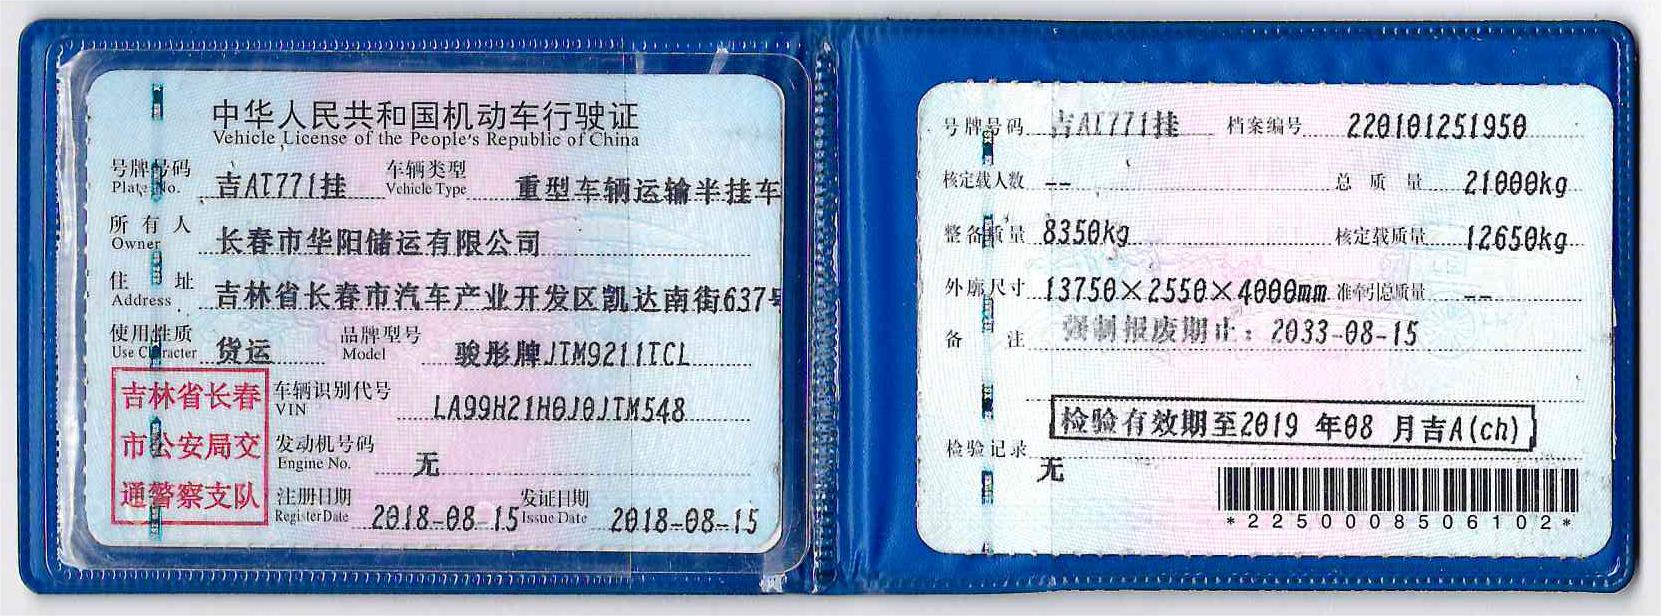 中华人民共和国机动车行驶证
Vehicle License of the People's Republic of China
号牌号码 吉AT771挂 车辆类型 重型车辆运输半挂车
Plate No. Vehicle Type
所有人 长春市华阳储运有限公司
Owner
住址 吉林省长春市汽车产业开发区凯达南街637号
Address
使用性质 货运 品牌型号 骏彤牌JTM9211TCL
Use Character Model
吉林省长春
市公安局交
通警察支队
车辆识别代号 LA99H21H0J0JTM548
VIN
发动机号码 无
Engine No.
注册日期 2018-08-15 发证日期 2018-08-15
Register Date Issue Date
号牌号码 吉AT771挂 档案编号 220101251950
核定载人数 -- 总质量 21000kg
整备质量 8350kg 核定载质量 12650kg
外廓尺寸 13750×2550×4000mm 准牵引总质量 --
备注 强制报废期止：2033-08-15
检验有效期至2019 年08 月吉A(ch)
检验记录 无
*2250008506102*